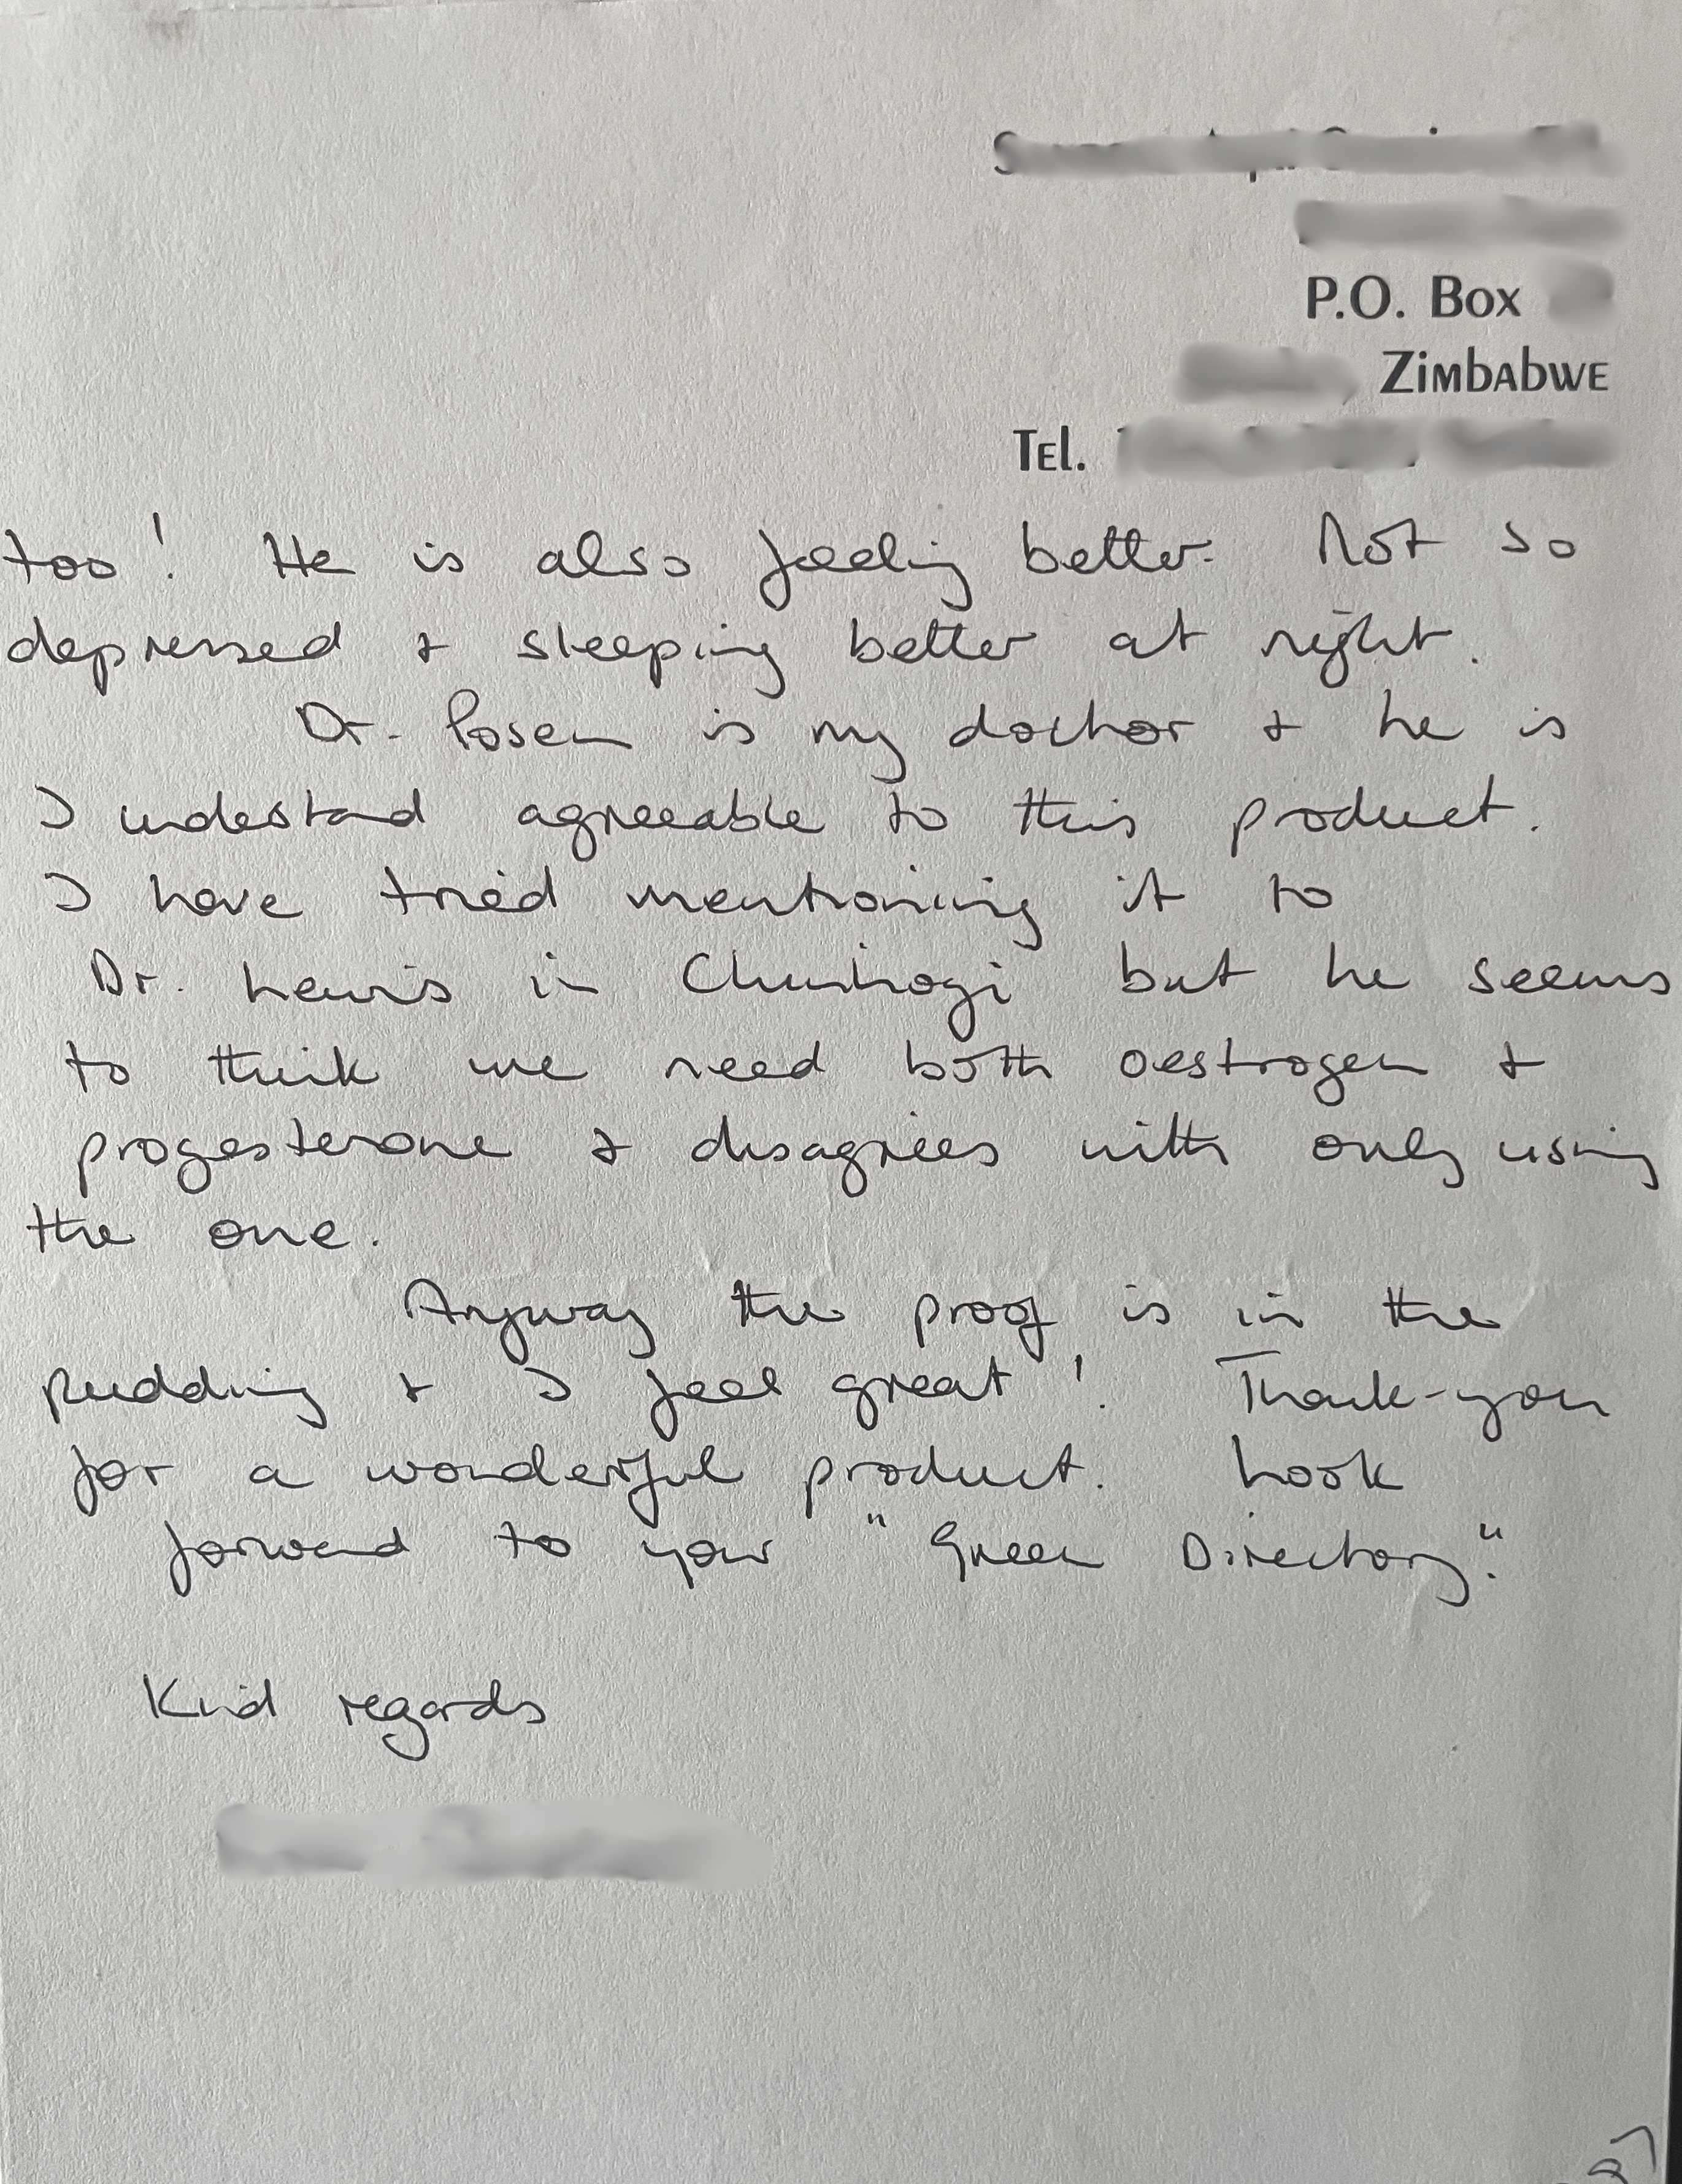 P.O. Box
Zimbabwe
Tel.
too! He is also feeling better. Not so
depressed & sleeping better at night.
Dr. Posen is my doctor & he is
I understand agreeable to this product.
I have tried mentioning it to
Dr. Lewis in Chinhoyi but he seems
to think we need both oestrogen &
progesterone & disagrees with only using
the one.
Anyway the proof is in the
pudding & I feel great! Thank-you
for a wonderful product. Look
forward to your "Green Directory".
Kind regards